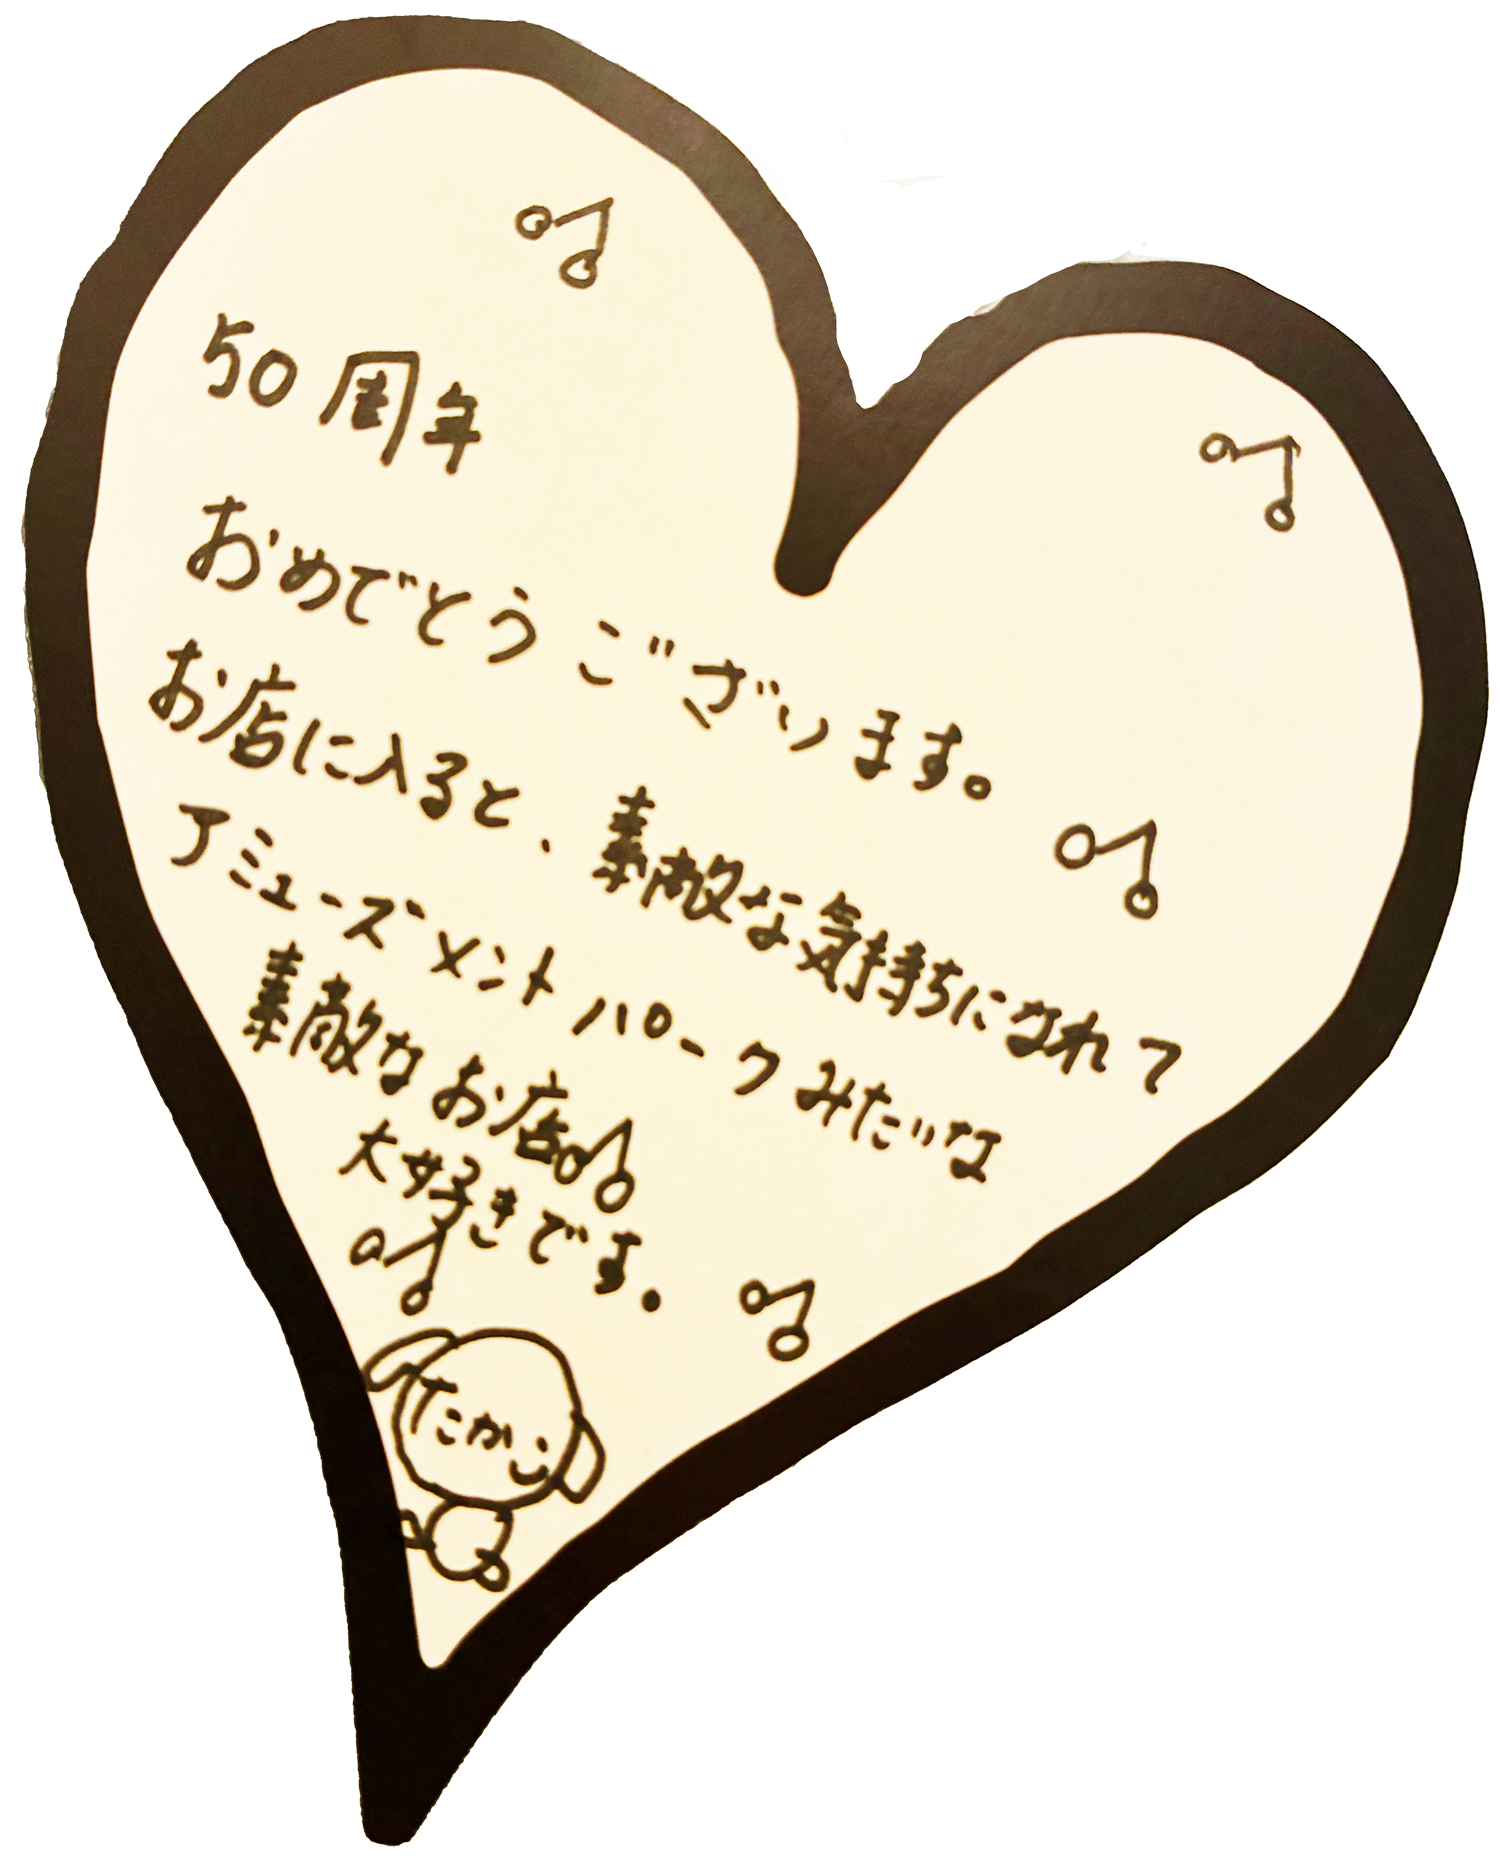 50周年
おめでとうございます。
お店に入ると、素敵な気持ちになれて
アミューズメントパークみたいな
素敵なお店♫
大好きです。